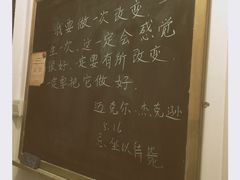 我要做一次改变
生一次,这一定会感觉
很好,一定要有所改变,
一定要把它做好.
迈克尔.杰克逊
5.16